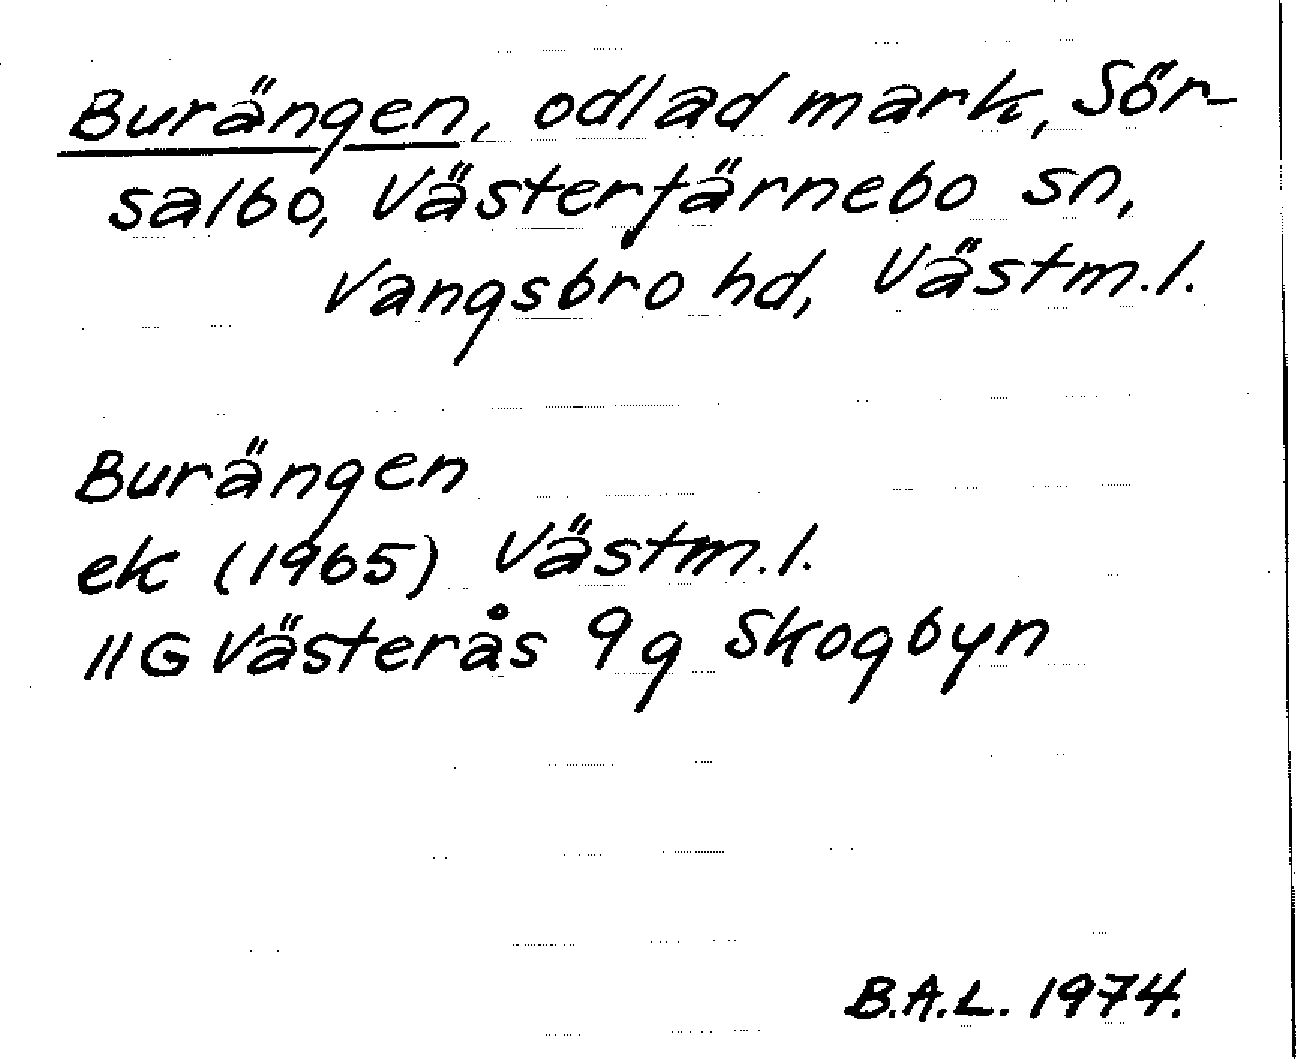 Burängen, odlad mark, Sör-
salbo, Västerfärnebo sn,
Vangsbro hd, Västm.l.
Burängen
ek (1965) Västm.l.
11G Västerås 9g Skogbyn
B.A.L. 1974.